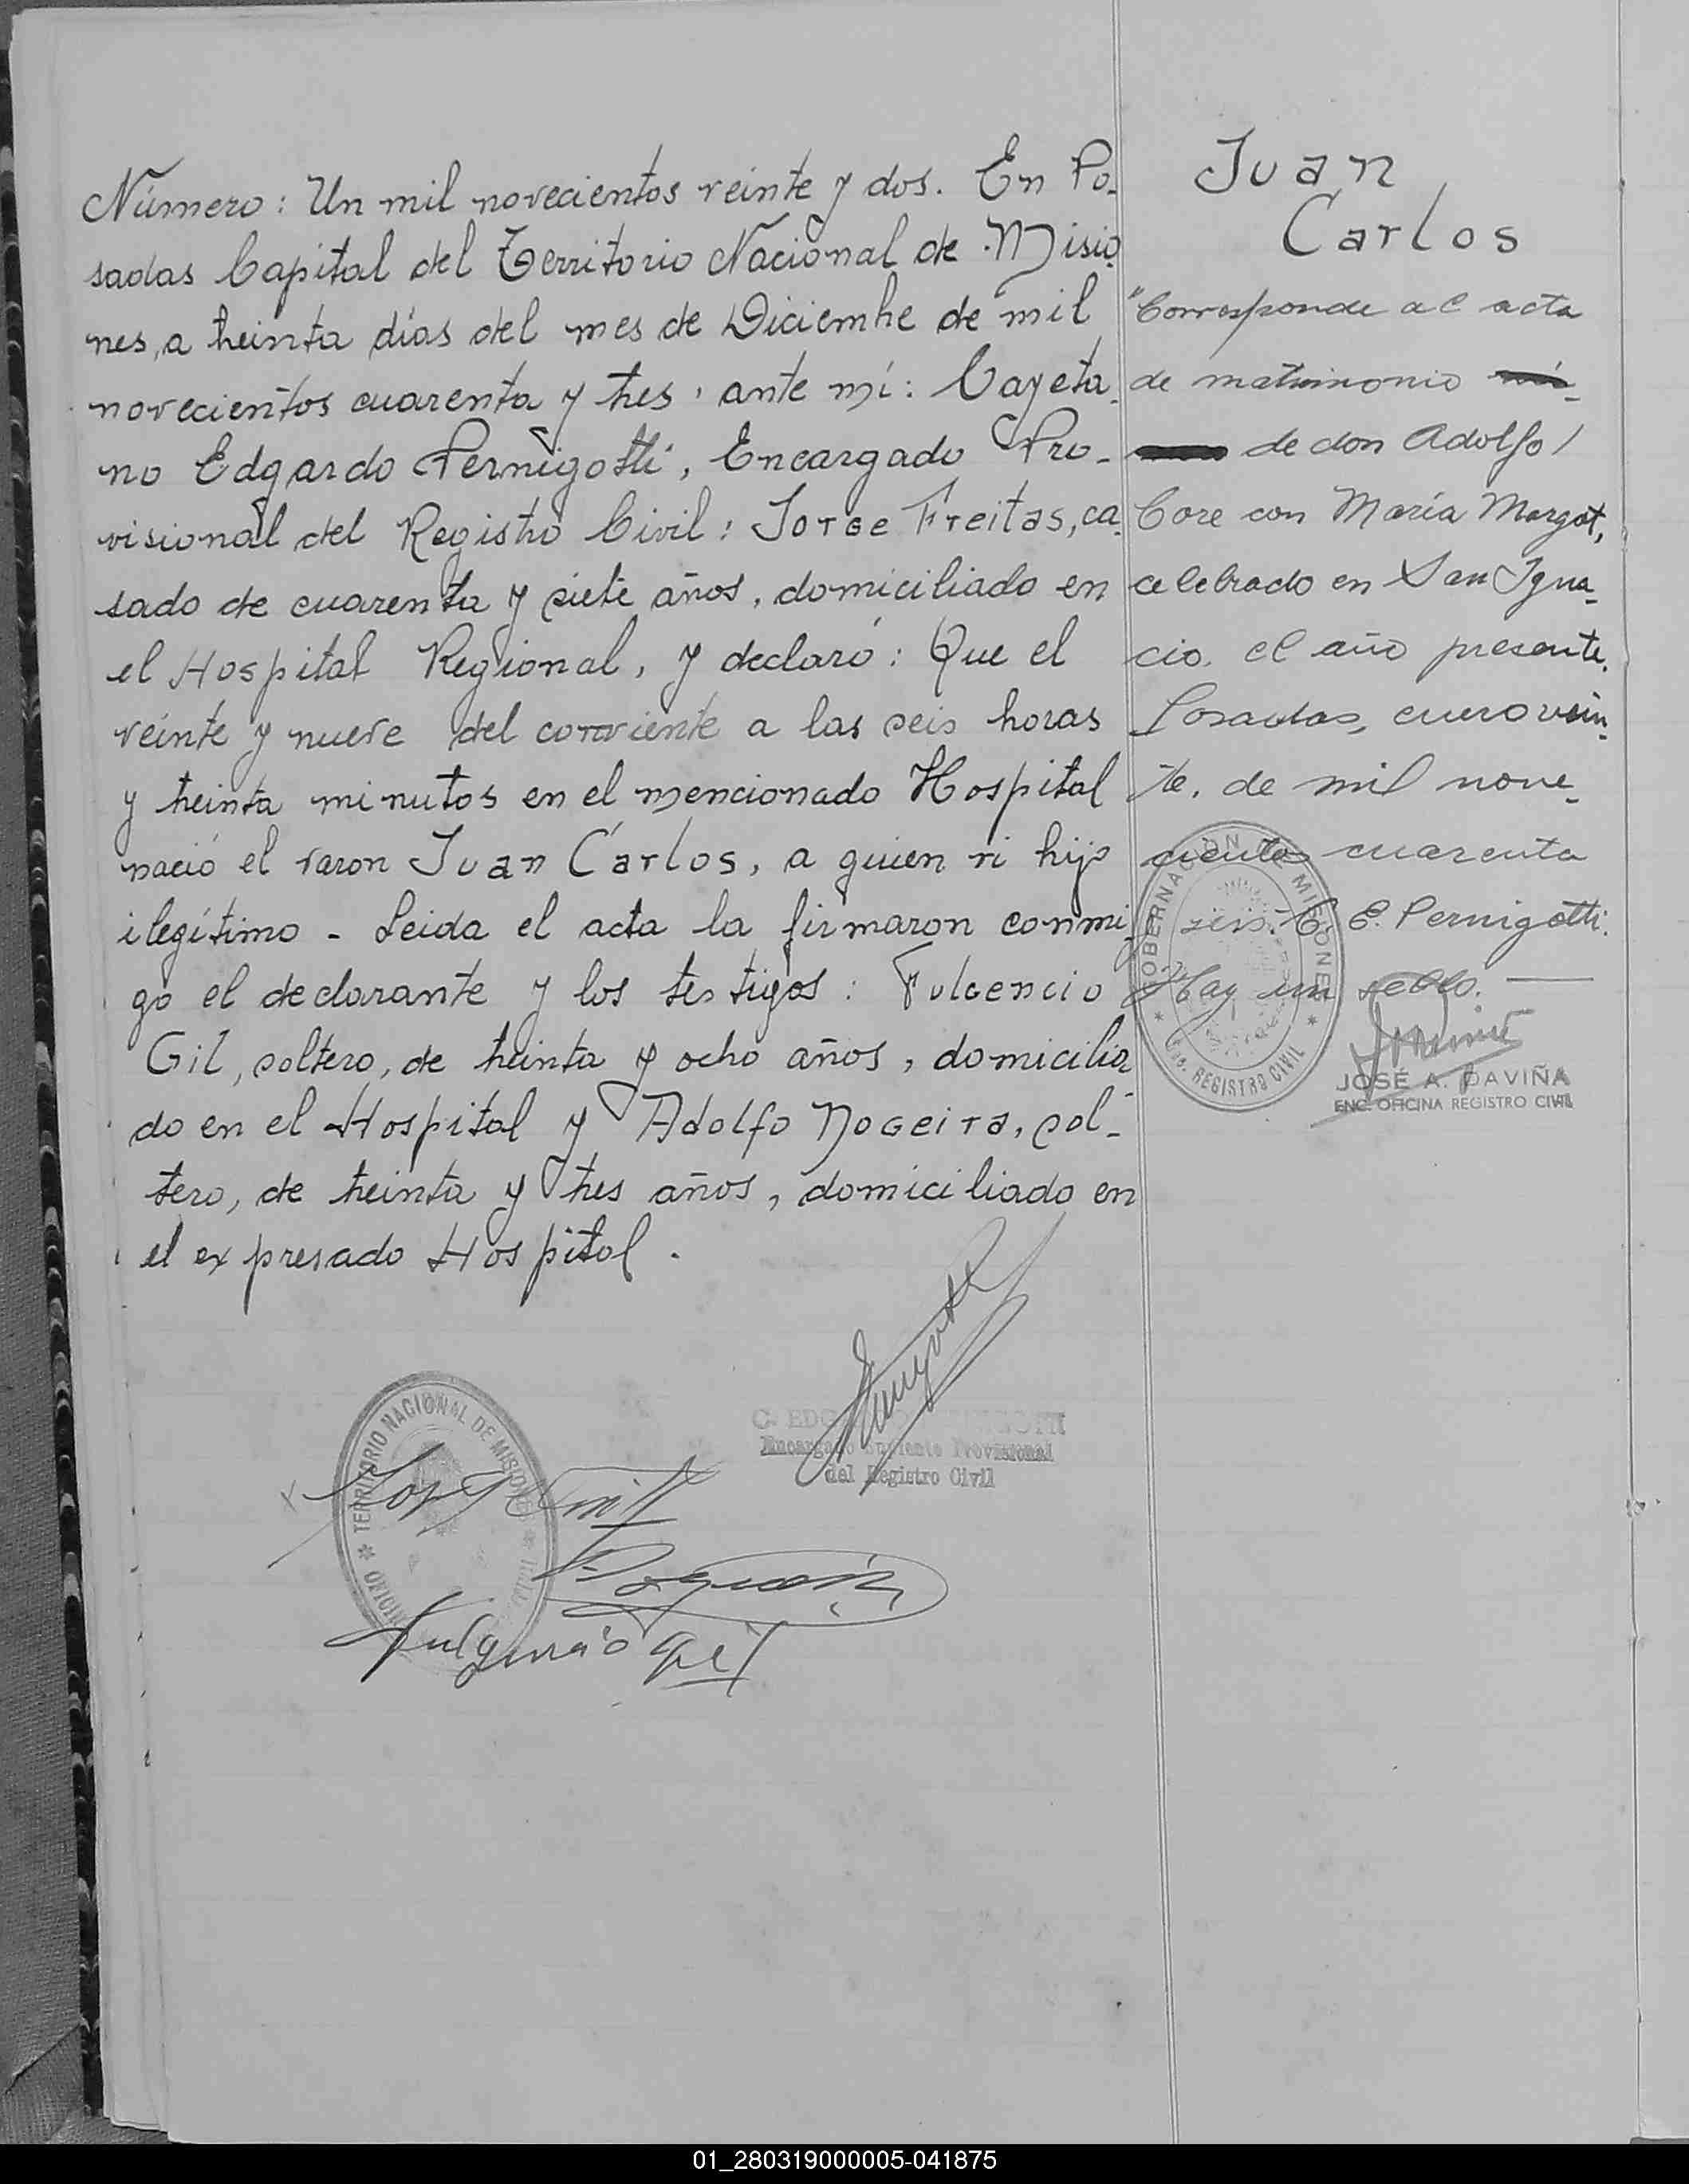 Número: Un mil novecientos veinte y dos. En Po-
sadas Capital del Territorio Nacional de Misio-
nes, a treinta días del mes de Diciembre de mil
novecientos cuarenta y tres, ante mí: Cayeta-
no Edgardo Pernigotti, Encargado Pro-
visional del Registro Civil: Jorge Freitas, ca-
sado de cuarenta y siete años, domiciliado en
el Hospital Regional, y declaró: Que el
veinte y nueve del corriente a las seis horas
y treinta minutos en el mencionado Hospital
nació el varon Juan Carlos, a quien vi hijo
ilegítimo - Leida el acta la firmaron conmi-
go el declarante y los testigos: Fulgencio
Gil, soltero, de treinta y ocho años, domicilia-
do en el Hospital y Adolfo Nogeira, sol-
tero, de treinta y tres años, domiciliado en
el expresado Hospital.
Juan
Carlos
"Corresponde al acta
de matrimonio
de don Adolfo
Core con María Margot,
celebrado en San Igna-
cio. el año presente.
Posadas, enero vein-
te, de mil nove-
cientos cuarenta
seis. C. E. Pernigotti.
Hay un sello.
GOBERNACION DE MISIONES
REGISTRO CIVIL
JOSÉ A. DAVIÑA
ENC. OFICINA REGISTRO CIVIL
Encargado Suplente Provisional
del Registro Civil
TERRITORIO NACIONAL DE MISIONES
Fulgencio Gil
01_280319000005-041875